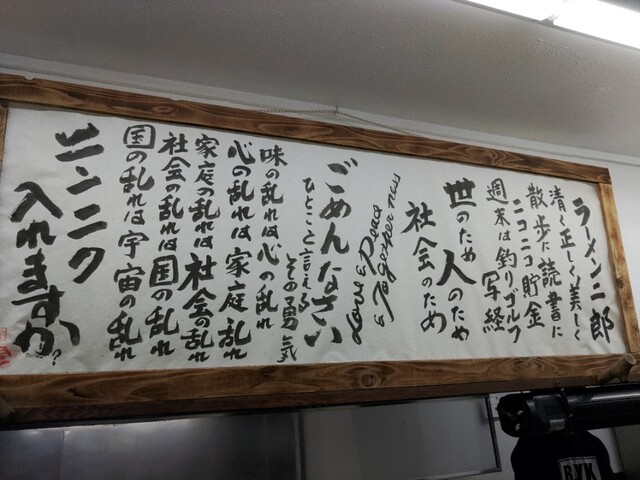 ラーメン二郎
清く正しく美しく
散歩に読書に
ニコニコ貯金
週末は釣りゴルフ
写経
世のため人のため
社会のため
Love & Peace
& Together now
ごめんなさい
ひとこと言える
その勇気
味の乱れは心の乱れ
心の乱れは家庭乱れ
家庭の乱れは社会の乱れ
社会の乱れは国の乱れ
国の乱れは宇宙の乱れ
ニンニク
入れますか?